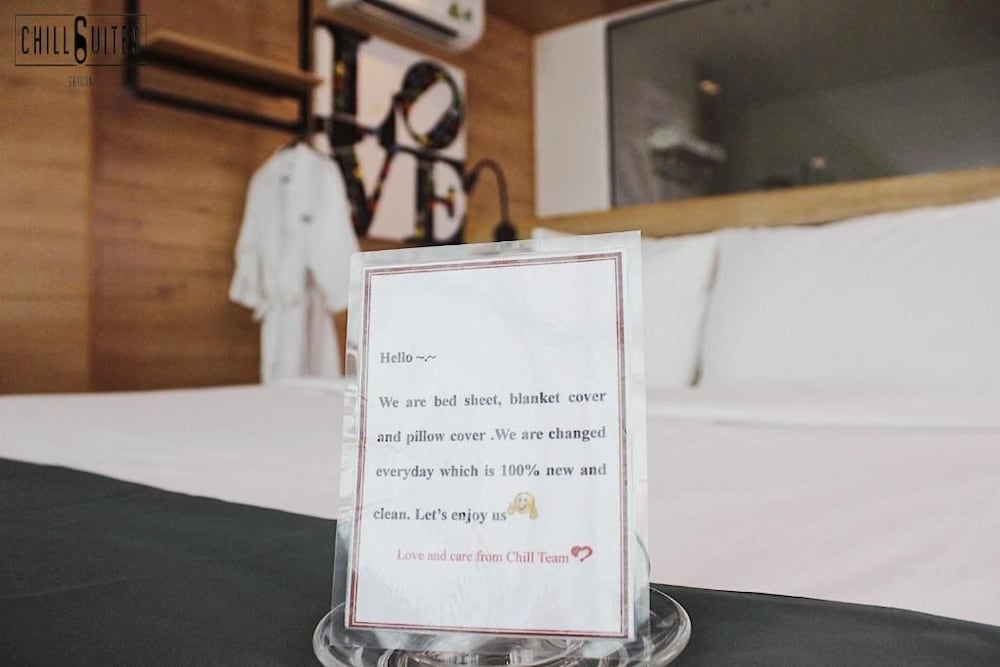 CHILL6UITES
SAIGON
LOVE
Hello ~.~
We are bed sheet, blanket cover
and pillow cover .We are changed
everyday which is 100% new and
clean. Let's enjoy us
Love and care from Chill Team